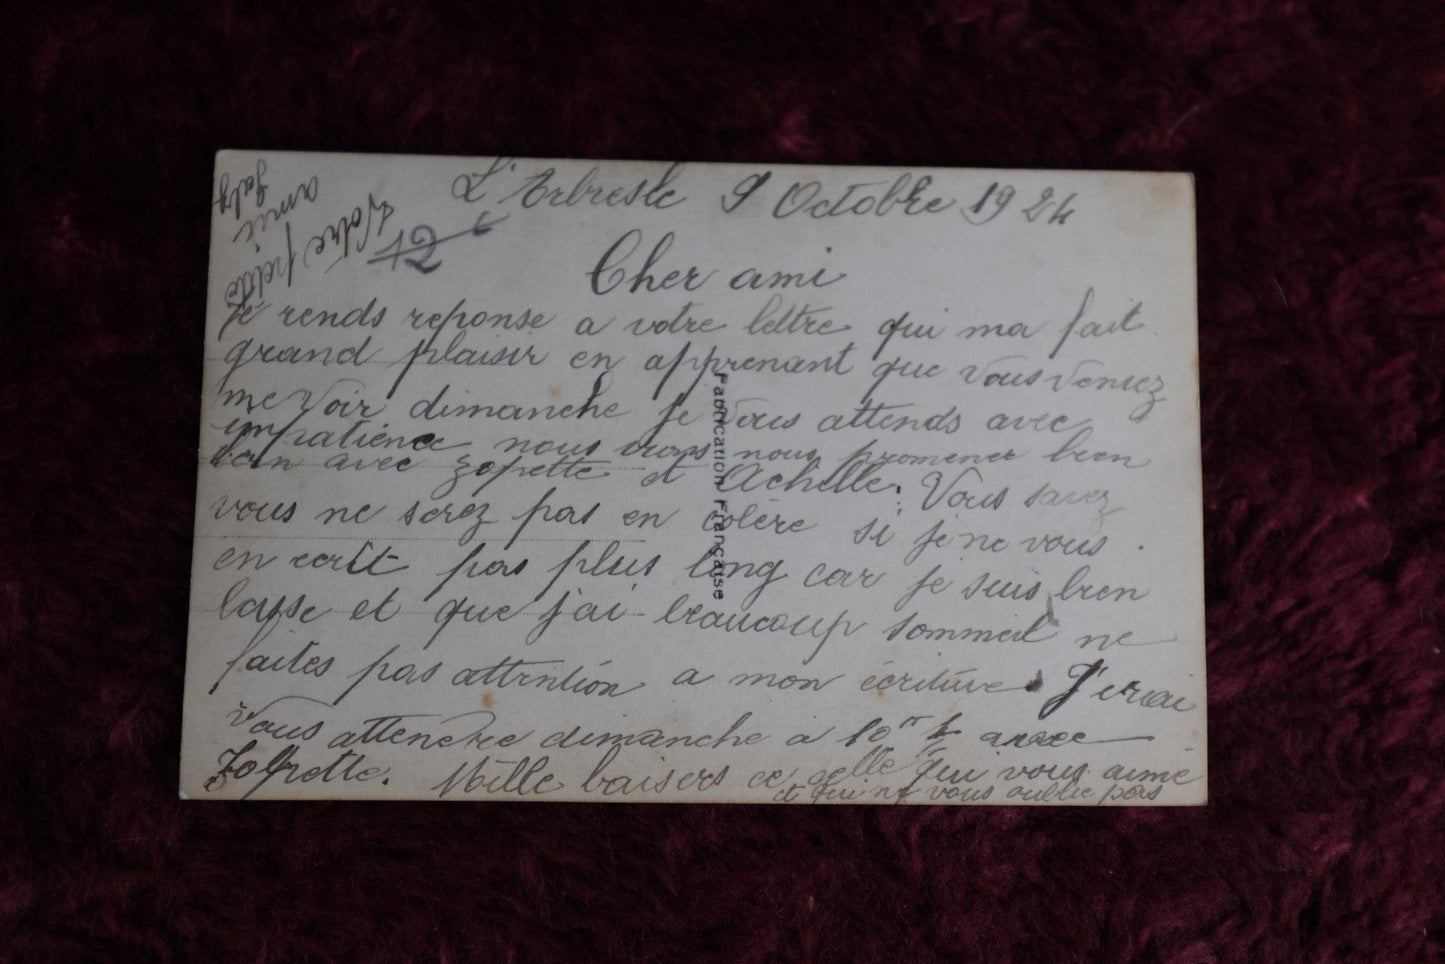 L'Arbresle 9 Octobre 1924
12
Cher ami
Je rends reponse a votre lettre qui ma fait
grand plaisir en apprenant que vous venez
me voir dimanche je vous attends avec
impatience nous irons nous promener bien
loin avec zopette et Achille. Vous savez
vous ne serez pas en colère si je ne vous
en ecrit pas plus long car je suis bien
lasse et que j'ai beaucoup sommeil ne
faites pas attention a mon écriture. J'erai
vous attendre dimanche a 10 h avec
Zolpette. Mille baisers de celle qui vous aime
et qui ne vous oublie pas
Votre petite
amie
Fabrication Française